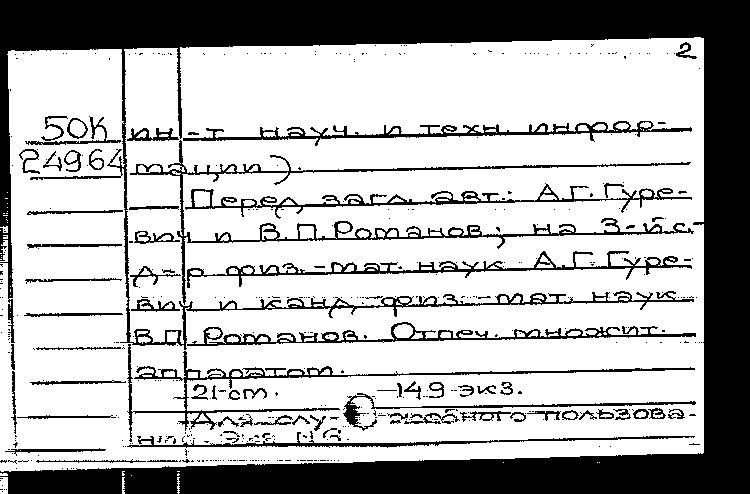 2
50К
24964
ин-т науч. и техн. инфор-
мации).
Перед загл. авт.: А.Г.Гуре-
вич и В.П.Романов; на 3-й с.-
д-р физ.-мат. наук А.Г.Гуре-
вич и канд. физ.-мат. наук
В.П.Романов. Отпеч. множит.
аппаратом.
21 cm. 149 экз.
Для слу- жебного пользова-
ния. Экз. №